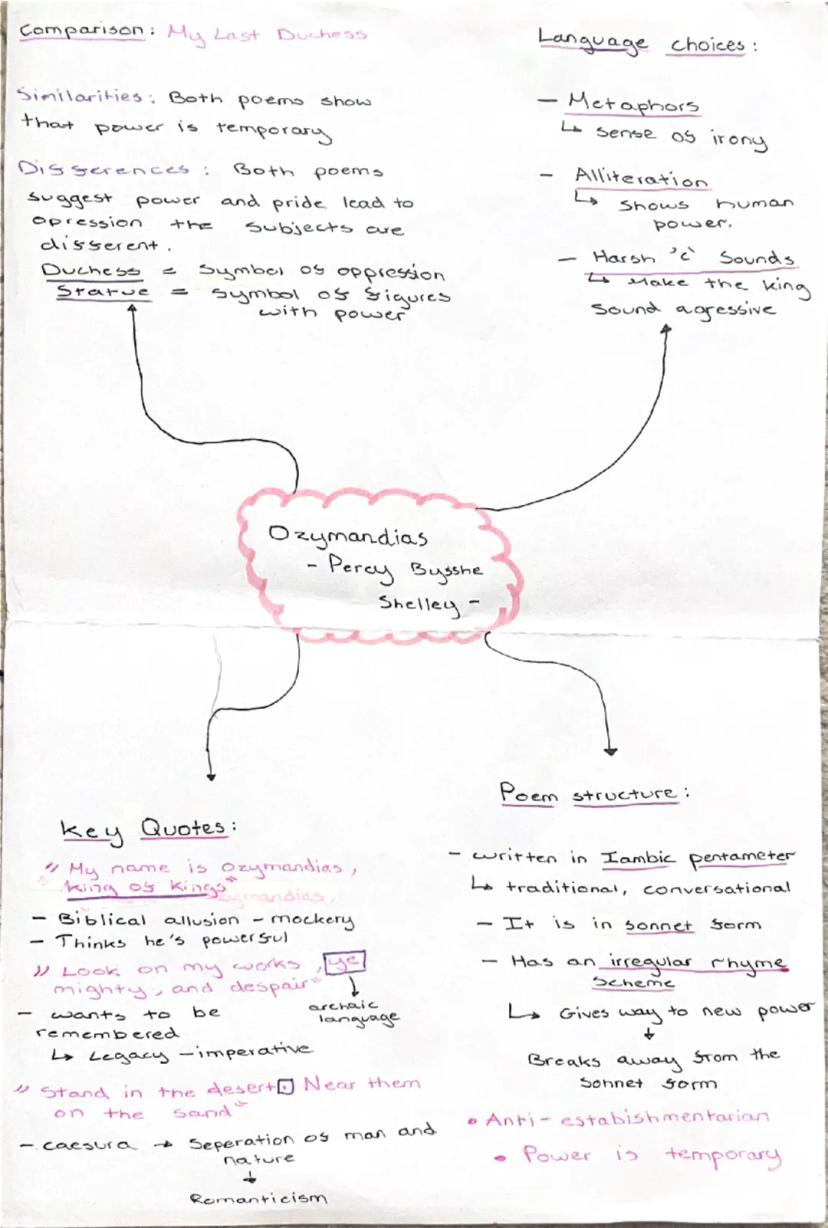 Comparison: My Last Duchess
Similarities: Both poems show
that power is temporary
Differences: Both poems
suggest power and pride lead to
opression the subjects are
different.
Duchess = Symbol of oppression
Statue = symbol of figures
with power
Language choices:
- Metaphors
↳ sense of irony
- Alliteration
↳ shows human
power.
- Harsh 'c' Sounds
↳ Make the king
sound agressive
Ozymandias
- Percy Bysshe
Shelley -
Key Quotes:
"My name is Ozymandias,
king of kings"
- Biblical allusion - mockery
- Thinks he's powerful
"Look on my works, ye
mighty, and despair"
archaic
language
- wants to be
remembered
↳ Legacy - imperative
"Stand in the desert. Near them
on the sand"
- caesura → Seperation of man and
nature
↓
Romanticism
Poem structure:
- written in Iambic pentameter
↳ traditional, conversational
- It is in sonnet form
- Has an irregular rhyme
scheme
↳ Gives way to new power
↓
Breaks away from the
sonnet form
• Anti-estabishmentarian
• Power is temporary